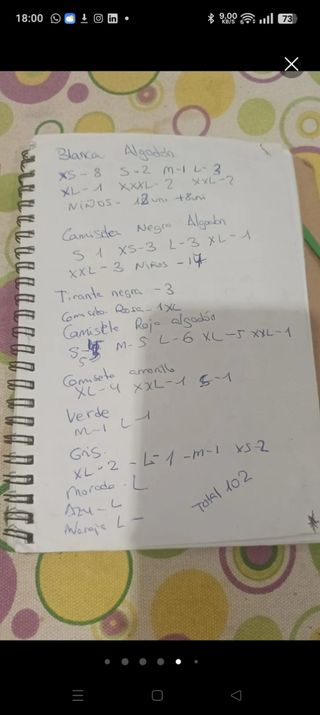 18:00
9,00
KB/S
73
Blanca Algodón
XS-8 S-2 M-1 L-3
XL-1 XXXL-2 XXL-2
NIÑOS-
Camiseta Negra Algodon
S 1 XS-3 L-3 XL-1
XXL-3 Niños -17
Tirante negra -3
Camiseta Rosa-1XL
Camiseta Roja algodón
S- M-5 L-6 XL-5 XXL-1
Camiseta amarillo
XL-4 XXL-1 S-1
Verde
M-1 L-1
Gris
XL-2 -L-1 -M-1 XS-2
Morada-L
Azul-L
Naraja L-
Total 102